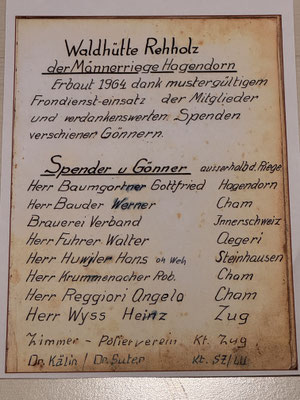 Waldhütte Rehholz
der Männerriege Hagendorn
Erbaut 1964 dank mustergültigem
Frondienst-einsatz der Mitglieder
und verdankenswerten Spenden
verschiener Gönnern.
Spender u Gönner ausserhalb d. Riege
Herr Baumgartner Gottfried Hagendorn
Herr Bauder Werner Cham
Brauerei Verband Innerschweiz
Herr Fuhrer Walter Aegeri
Herr Huwiler Hans oh Weh Steinhausen
Herr Krummenacher Rob. Cham
Herr Reggiori Angelo Cham
Herr Wyss Heinz Zug
Zimmer - Polierverein Kt. Zug
Dr. Kälin / Dr Suter Kt. SZ/LU